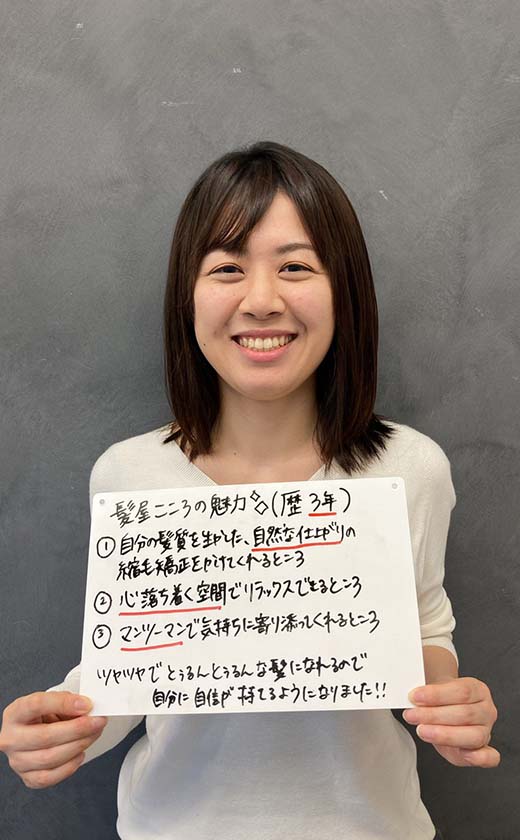 髪屋こころの魅力✧(歴 3年)
① 自分の髪質を生かした、自然な仕上がりの
縮毛矯正をかけてくれるところ
② 心落ち着く空間でリラックスできるところ
③ マンツーマンで気持ちに寄り添ってくれるところ
ツヤツヤでとぅるんとぅるんな髪になれるので
自分に自信が持てるようになりました!!